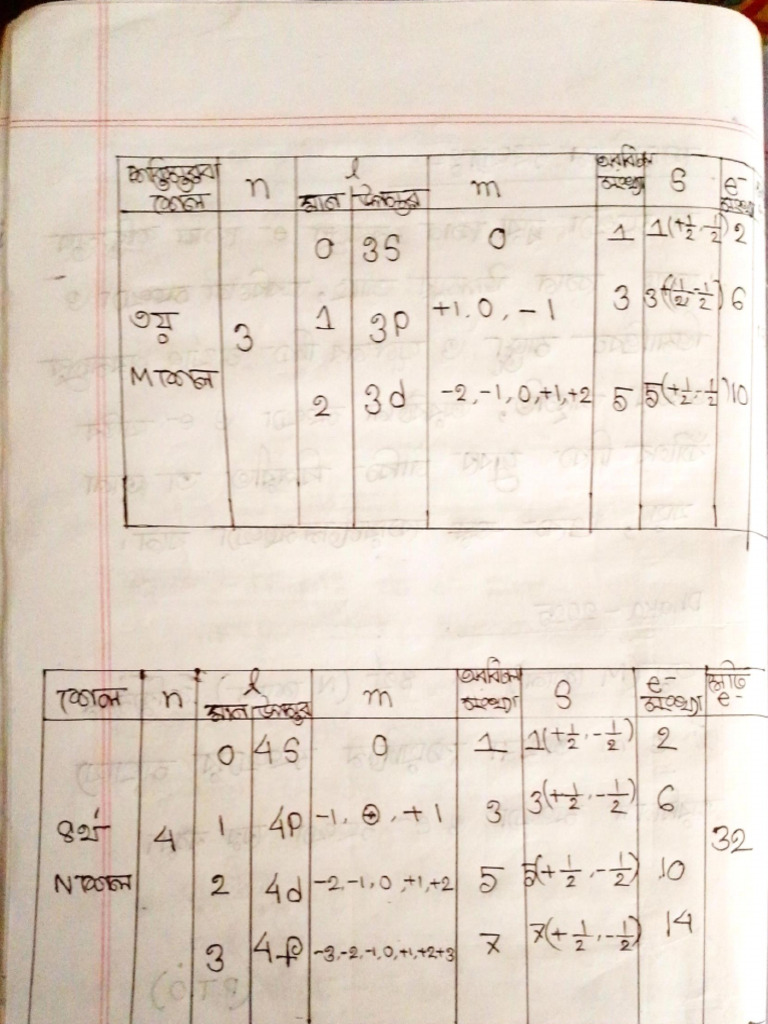 শক্তিস্তর বা শেল n l m অরবিটাল সংখ্যা S e- সংখ্যা
মান উপস্তর
0 3S 0 1 1(+1/2, -1/2) 2
৩য় M শেল 3 1 3p +1, 0, -1 3 3(+1/2, -1/2) 6
2 3d -2, -1, 0, +1, +2 5 5(+1/2, -1/2) 10
শেল n l m অরবিটাল সংখ্যা S e- সংখ্যা মোট e-
মান উপস্তর
0 4S 0 1 1(+1/2, -1/2) 2
৪র্থ N শেল 4 1 4p -1, 0, +1 3 3(+1/2, -1/2) 6 32
2 4d -2, -1, 0, +1, +2 5 5(+1/2, -1/2) 10
3 4f -3, -2, -1, 0, +1, +2 +3 7 7(+1/2, -1/2) 14